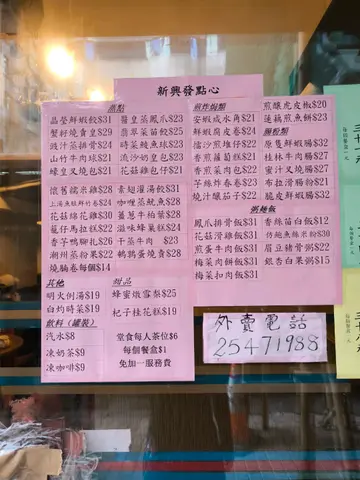 新興發點心
蒸點
晶瑩鮮蝦餃$31
蟹籽燒賣皇$29
豉汁蒸排骨$24
山竹牛肉球$21
蠔皇叉燒包$21
醬皇蒸鳳爪$23
翡翠菜苗餃$25
時菜鯪魚球$23
流沙奶皇包$23
花菇雞包仔$21
懷舊糯米雞$28
上海魚肚鮮竹卷$24
花菇綿花雞$30
蘿仔馬拉糕$21
香芋鴨腳扎$26
潮州蒸粉果$22
燒腩卷每個$14
素翅灌湯餃$31
咖喱蒸魷魚$28
薑蔥牛柏葉$28
滋味蜂巢糕$24
干蒸牛肉 $28
鵪鶉蛋燒賣$28
煎炸焗類
安蝦咸水角$21
鮮蝦腐皮卷$24
擂沙煎堆仔$22
香煎蘿蔔糕$21
香煎菜肉包$21
芋絲炸春卷$23
燒汁釀茄子$22
煎釀虎皮椒$20
蓮藕煎魚餅$23
腸粉類
原隻鮮蝦腸$32
桂林牛肉腸$27
蜜汁叉燒腸$21
布拉滑腸粉$21
脆皮鮮蝦腸$32
粥麵飯
鳳爪排骨飯$31
花菇滑雞飯$31
煎蛋牛肉飯$31
梅菜肉餅飯$31
梅菜扣肉飯$31
香絲苗白飯$12
眉豆豬骨粥$22
銀杏白果粥$15
其他
明火例湯$19
白灼時菜$19
甜品
蜂蜜燉雪梨$25
杞子桂花糕$19
飲料（罐裝）
汽水$8
凍奶茶$9
凍咖啡$9
堂食每人茶位$6
每個餐盒$1
免加一服務費
外賣電話
25471988